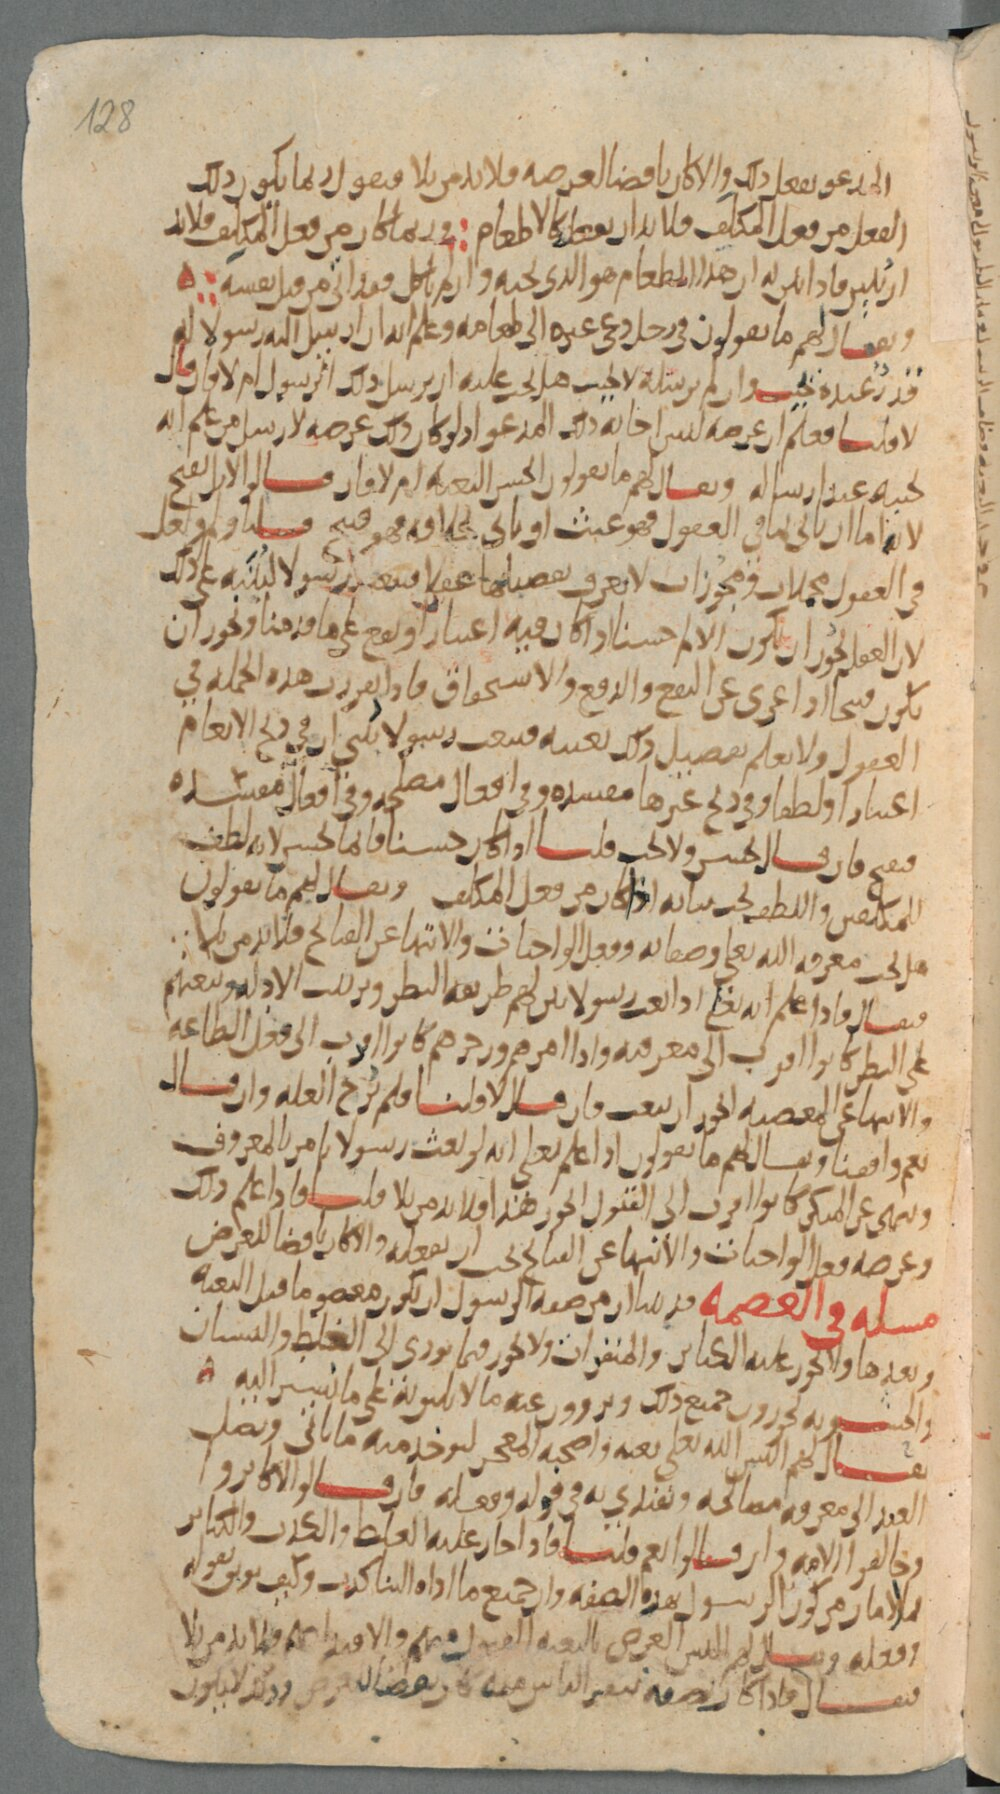 128
المدعو يفعل ذلك والا كان ناقضا لغرضه فلا بد من بلا فيقول ربما يكون ذلك
الفعل من فعل المكلف فلا بد ان يفعله كالاطعام وربما كان من فعل المكلف فلا بد
ان يبين فاذا بين له ان هذا الطعام هو الذي يجبه وان لم ياكل فقد اتى من قبل نفسه
ويقال لهم ما تقولون في رجل دعى غيره الى طعامه وعلم انه ان ارسل اليه رسولا له
قدر عنده يجيب وان لم يرسله لا يجيب هل يجب عليه ان يرسل ذلك الرسول ام لا فان قال
لا قلنا فعلم ان غرضه ليس اجابة ذلك المدعو اذ لو كان ذلك غرضه لارسل من علم انه
يجيبه عند ارساله ويقال لهم ما تقولون ايحسن البعثة ام لا فان قالوا لا بل يقبح
لانه اما ان ياتي بما في العقول فهو عبث او ياتي بخلافه فهو قبيح قلنا ولم ولعل
في العقول مجملات ومجوزات لا يعرف تفصيلها عقلا فيبعث رسولا لينبه على ذلك
لان العقل يجوز ان يكون الالم حسنا اذا كان فيه اعتبار او نفع على ما قدمنا ويجوز ان
يكون قبيحا اذا عرى عن النفع والدفع والاستحقاق فاذا تقررت هذه الجملة في
العقول ولا يعلم تفصيل ذلك بعينه فيبعث رسولا يبين ان في ذبح الانعام
اعتبارا ولطفا وفي ذبح غيرها مفسدة وفي افعال مصلحة وفي افعال مفسدة
فيقبح فان قال يحسن ولا يجب قلنا اذا كان حسنا فانما يحسن لانه لطف
للمكلفين واللطف يجب بيانه اذا كان من فعل المكلف ويقال لهم ما تقولون
هل يجب معرفة الله تعالى وصفاته وفعل الواجبات والانتهاء عن القبائح فلا بد من بلا
فيقال فاذا علم انه تعالى اذا بعث رسولا بين لهم طريقة النظر وترتيب الادلة ويبعثهم
على النظر كانوا اقرب الى معرفته واذا امرهم وزجرهم كانوا اقرب الى فعل الطاعة
والانتهاء عن المعصية ايجوز ان يبعث فان قال لا قلنا فلم تزح العلة وان قال
نعم وافقنا ويقال لهم ما تقولون اذا علم تعالى انه لو بعث رسولا يامر بالمعروف
وينهى عن المنكر كانوا اقرب الى القبول ايجوز هذا فلا بد من بلا قلنا فاذا علم ذلك
وغرضه فعل الواجبات والانتهاء عن القبائح يجب ان يفعله والا كان ناقضا للغرض
مسلة في العصمة قد بينا ان من صفة الرسول ان يكون معصوما قبل البعثة
وبعدها ولا يجوز عليه الكبائر والمنفرات ولا يجوز فيما يودي الى الغلط والنسيان
والحشوية يجوزون جميع ذلك ويروون عنه ما لا يليق به على ما نسب اليه
يقال لهم اليس الله تعالى بعثه واصحبه المعجز ليوخذ منه ما ياتي ويصل
العبد الى معرفة مصالحه ويقتدي به في قوله وفعله فان قالوا لا كابروا
وخالفوا الامة وان قالوا نعم قلنا فاذا جاز عليه الغلط والكذب والكبائر
فلا امان من كون الرسول بهذه الصفة وان جميع ما اداه الينا كذب وكيف يوثق بقوله
وفعله ويقال لهم اليس الغرض بالبعثة القبول منهم والاقتداء بهم فلا بد من بلا
فيقال فاذا كان بصفة تنفر الناس منه كان نقضا للغرض وذلك لا يكون